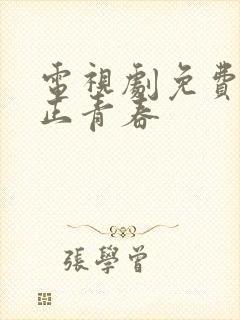 電視劇免費
正青春
張學曾